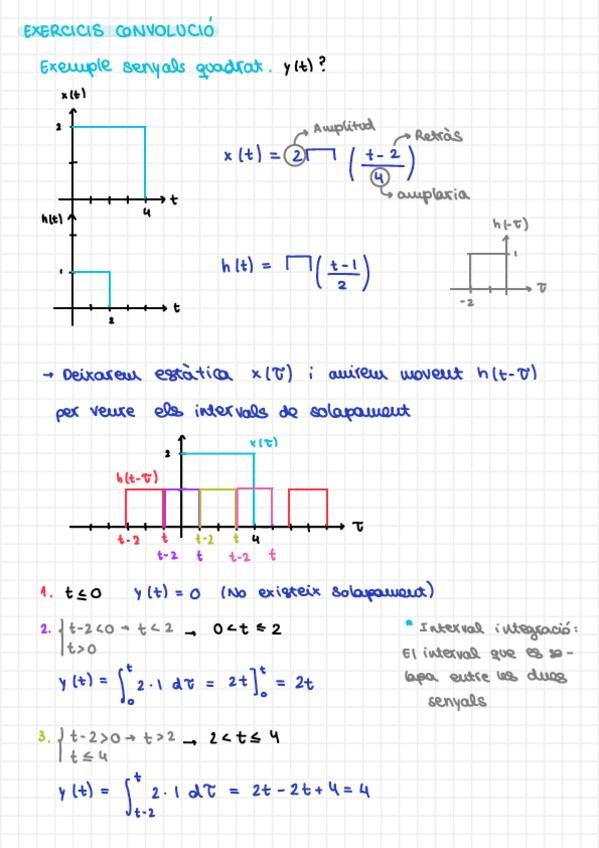 EXERCICIS CONVOLUCIÓ
Exemple senyals quadrat. y(t)?
x(t)
2
4
t
x(t) = 2 ⊓ (t-2 / 4)
Amplitud
Retràs
amplaria
h(t)
1
2
t
h(t) = ⊓ (t-1 / 2)
h(-τ)
1
-2
τ
→ Deixarem estàtica x(τ) i anirem movent h(t-τ)
per veure els intervals de solapament
x(τ)
2
h(t-τ)
τ
t-2 t t-2 t 4
t-2 t t-2 t
1. t ≤ 0 y(t) = 0 (No existeix solapament)
2. { t-2<0 → t<2 → 0<t≤2
t>0
y(t) = ∫₀ᵗ 2·1 dτ = 2t]₀ᵗ = 2t
* Interval integració:
El interval que es so-
lapa entre les dues
senyals
3. { t-2>0 → t>2 → 2<t≤4
t≤4
y(t) = ∫ₜ₋₂ᵗ 2·1 dτ = 2t-2t+4=4